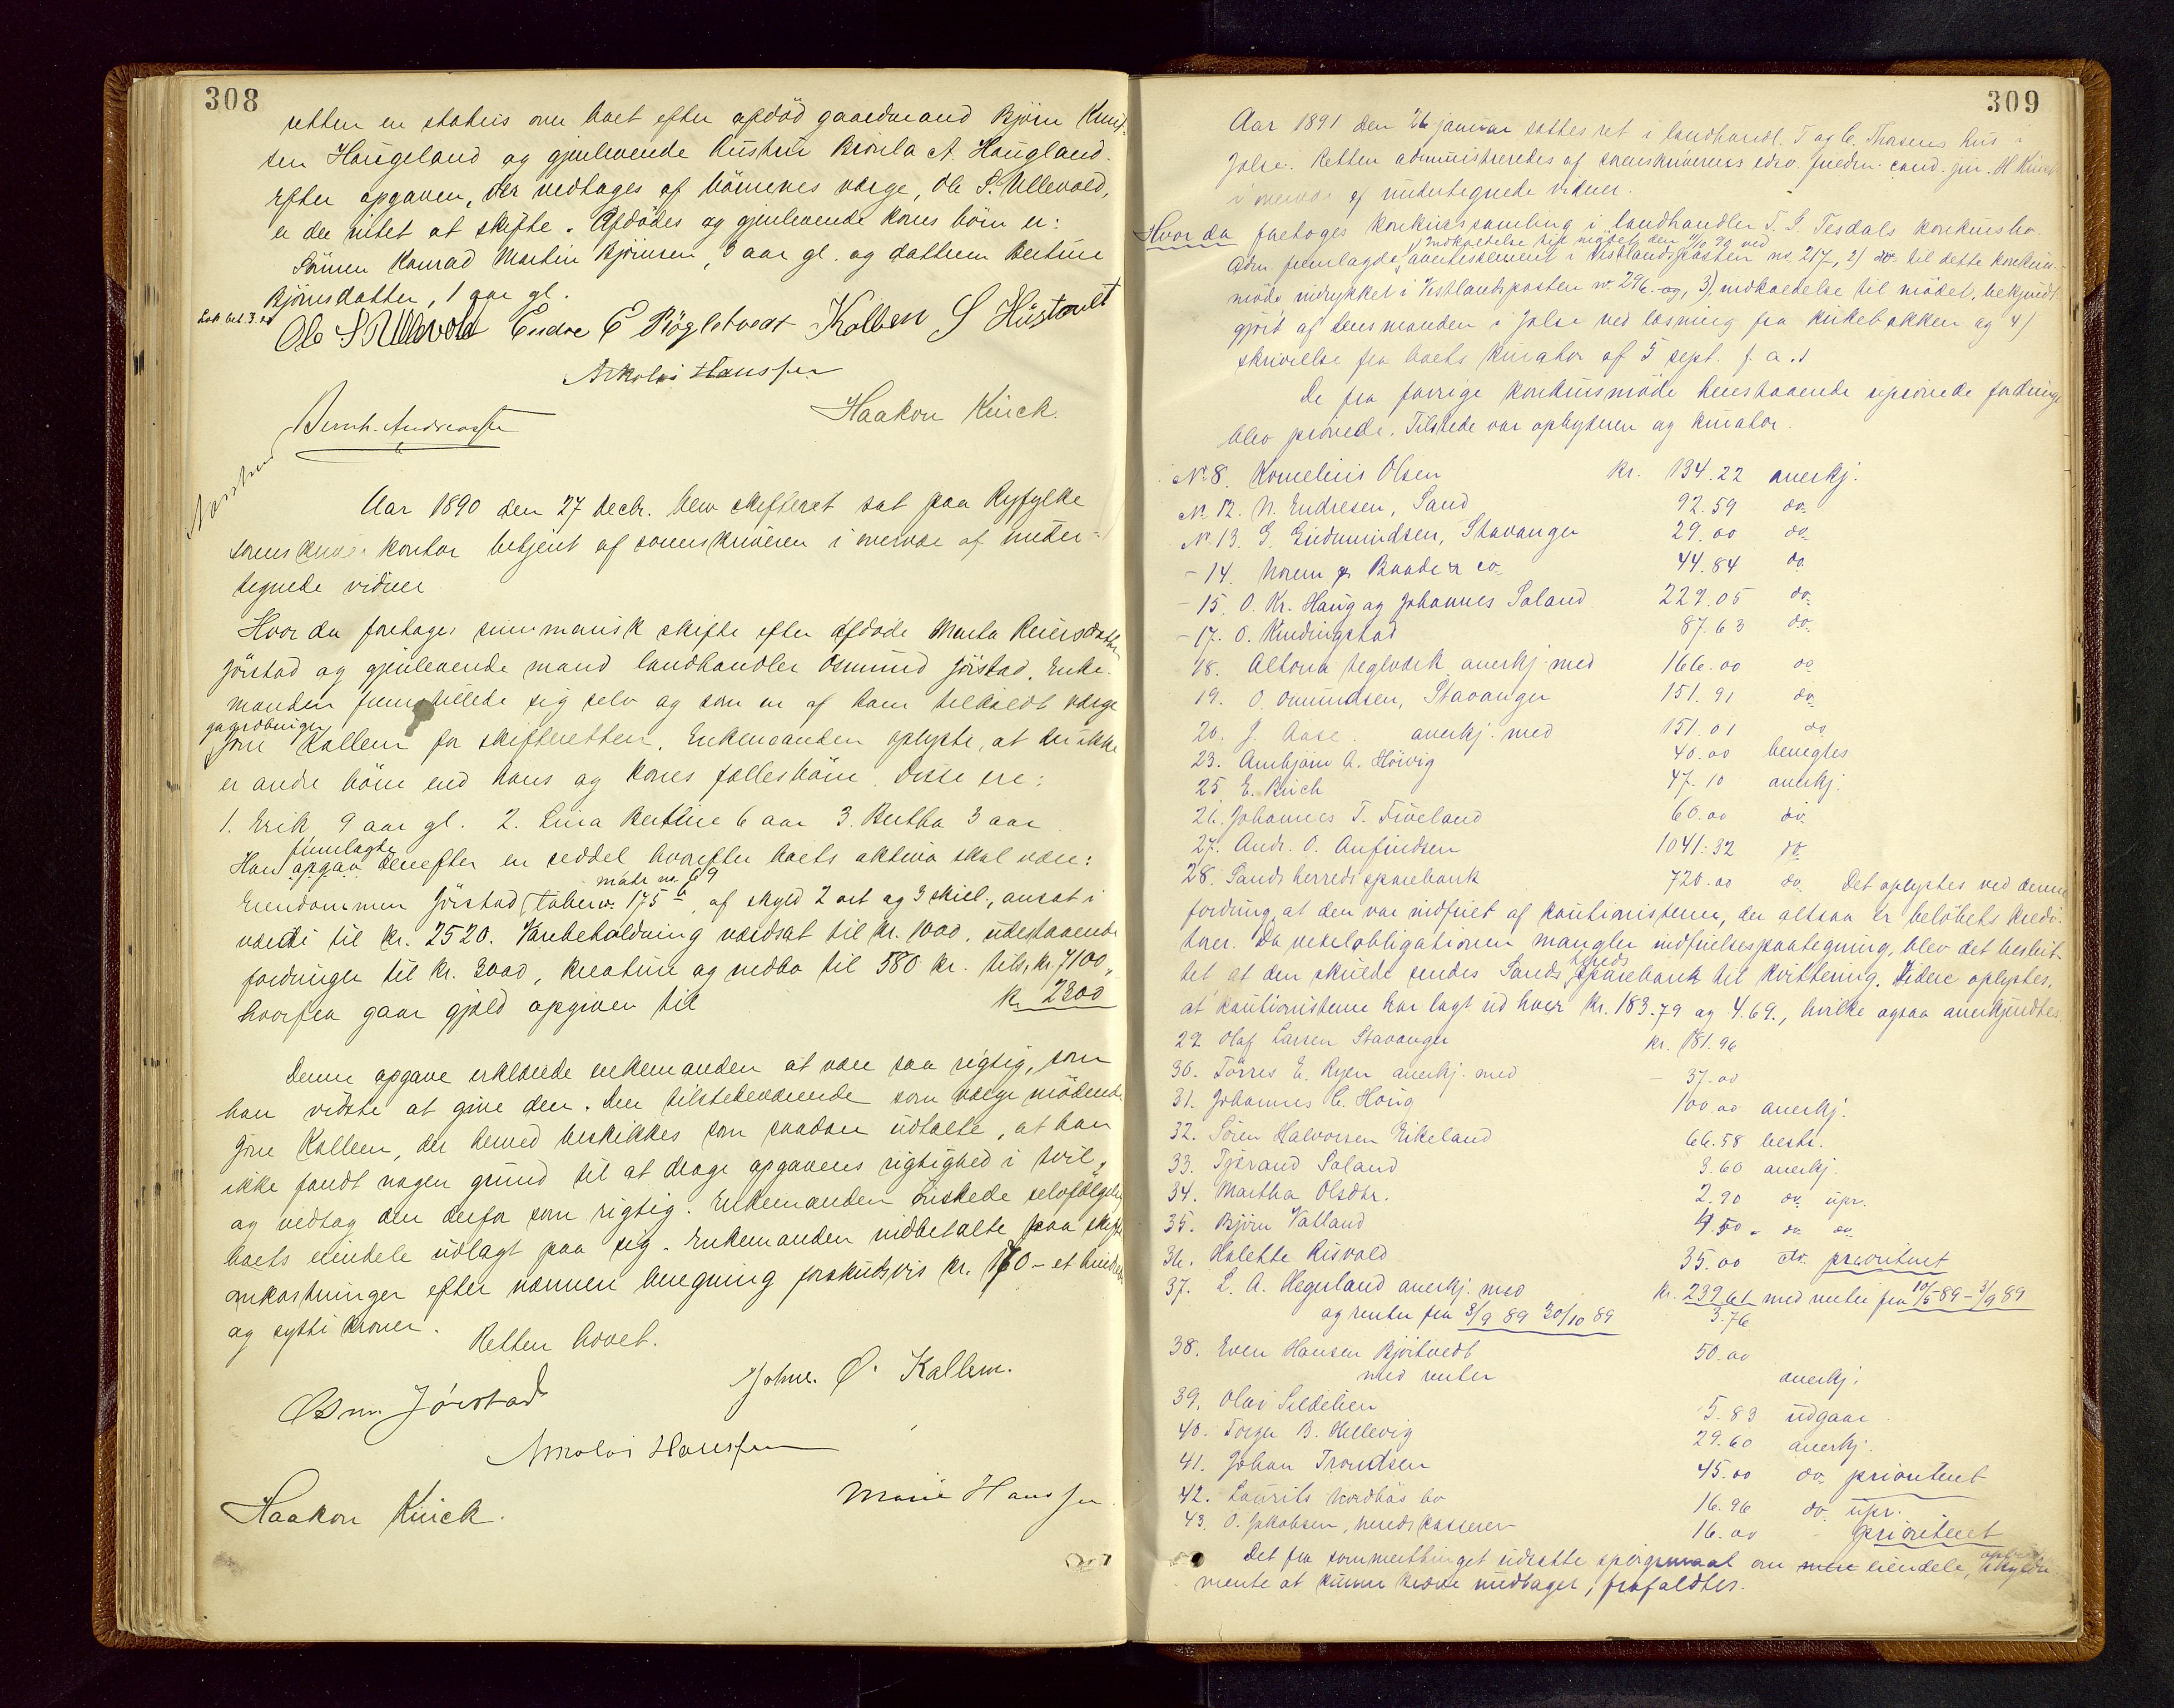 308
retten en status over boet efter afdöd gaardmand Björn Knut-
sen Haugeland og gjenlevende hustru A. Haugland.
Efter opgaven, der vedtages af börnenes værge, Ole S. Ullevold,
er der intet at skifte. Afdödes og gjenlevende kones börn er:
Sönnen Konrad Martin Björnsen, 3 aar gl. og datteren Bertine
Björnsdatter, 1 aar gl.
Ole S Ullevold Endre E Kolben S
Nikolai Hanssen
Haakon Kinck.
Bernh. Andreassen
Aar 1890 den 27 decbr. blev skifteret sat paa Ryfylke
sorenskriver kontor betjent af sorenskriveren i overvær af under-
tegnede vidner
Hvor da foretoges summarisk skifte efter afdöde Marta Reiersdatter
Jörstad og gjenlevende mand landhandler Osmund Jörstad. Enke-
manden fremstillede sig selv og som en af ham tilkaldt værge
gaardbruger
Jone Kallem for skifteretten. Enkemanden oplyste, at der ikke
er andre börn end hans og kones fællesbörn. Disse ere:
1. Erik 9 aar gl. 2. Lina Bertine 6 aar 3. Bertha 3 aar
fremlagte
Han opgav derefter en seddel hvorefter boets aktiva skal være:
matr no. 69
Eiendommen Jörstad, löbeno. 175 b, af skyld 2 ort og 3 skill., ansat i
værdi til kr. 2520. Varebeholdning værdsat til kr. 1000. udestaaende
fordringer til kr. 3000, kreaturer og redbo til 580 kr. tils. kr. 7100,
hvorfra gaar gjæld opgiven til kr 2300
Denne opgave erklærede enkemanden at være saa rigtig, som
han vidste at give den. Den tilstedeværende som værge mödende
Jone Kallem, der herved beskikkes som saadan udtalte, at han
ikke fandt nogen grund til at drage opgavens rigtighed i tvil
og vedtog den derfor som rigtig. Enkemanden önskede selvfölgelig
boets eiendele udlagt paa sig. Enkemanden indbetalte paa skifte
omkostninger efter nærmere beregning forskudsvis kr. 170 - et hundrede
og sytti kroner.
Retten hævet.
Osm. Jörstad
Johne. Ö. Kallem.
Nikolai Hanssen
Haakon Kinck.
Marie Hanssen
309
Aar 1891 den 26 januar sattes ret i landhandl. T og C. Thorsens hus i
Jelse. Retten administreredes af sorenskriverens edsv. fuldm. cand. jur. H Kinck
i overvær af undertegnede vidner.
Hvor da foretoges konkurssamling i landhandler T. G. Tesdals konkursbo.
Adm fremlagde avertissement i Vestlandsposten no. 217, 2) do. til dette konkurs-
möde indrykket i Vestlandsposten no. 296 og, 3) indkaldelse til mödet, bekjendt-
gjort af lensmanden i Jelse ved læsning fra kirkebakken og 4)
skrivelse fra boets kurator af 5 sept. f. a.
De fra forrige konkursmöde henstaaende uprövede fordringer
blev prövede. Tilstede var opbyderen og kurator.
No 8. Kornelius Olsen kr. 134.22 anerkj.
No 12. N. Endresen, Sand 92.59 do.
No 13. G. Gudmundsen, Stavanger 29.00 do.
- 14. Norem Baade & co. 44.84 do
- 15. O. Kr. Haug og Johannes Saland 229.05 do.
- 17. O. Kindingstad 87.63 do.
18. Altona teglværk anerkj. med 166.00 do
19. O. Omundsen, Stavanger 151.91 do.
20. J. Aase. anerkj. med 151.01 do
23. Arnbjörn A. Höivig 40.00 benegtes
25 E. Birch 47.10 anerkj.
26. Johannes T. Fiveland 60.00 do.
27. Andr. O. Anfindsen 1041.32 do.
28. Sands herreds sparebank 720.00 do. Det oplystes ved denne
fordring, at den var indfriet af kautionisterne, der altsaa er belöbets kredi-
torer. Da vexelobligationen mangler indfrielsespaategning, blev det beslut-
herreds
tet at den skulde sendes Sands sparebank til kvittering. Videre oplystes,
at kautionisterne har lagt ud hver kr. 183.79 og 4.69., hvilke ogsaa anerkjendtes.
29. Olaf Larsen Stavanger kr. 181.96
30. Törres E. Ryen anerkj. med - 37.00
31. Johannes C. Houg 100.00 anerkj.
32. Sören Halvorsen Eikeland 66.58 bestr.
33. Tjærand Saland 3.60 anerkj.
34. Martha Olsdtr. 2.90 do. upr.
35. Björn Vatland 4.50 - do do.
36. Halette Risvold 35.00 do. prioritert
37. L. A. Hegerland anerkj. med kr. 239.61 med renter fra 10/5 89 - 3/9 89
og renter fra 3/9 89 30/10 89 3.76
38. Even Hansen Björtvedt 50.00
med renter anerkj.
39. Olai Sildelien 5.83 udgaar
40. Torger B. Hellevig 29.60 anerkj.
41. Johan Trondsen 45.00 do. prioritert
42. Laurits Nordbös bo 16.96 do. upr.
43. O. Jakobsen, herredskasserer 16.00 - prioritert
Det fra sommerthinget udsatte spörgsmaal om eiendele,
mente at kunne kræve undtaget, frafaldtes.